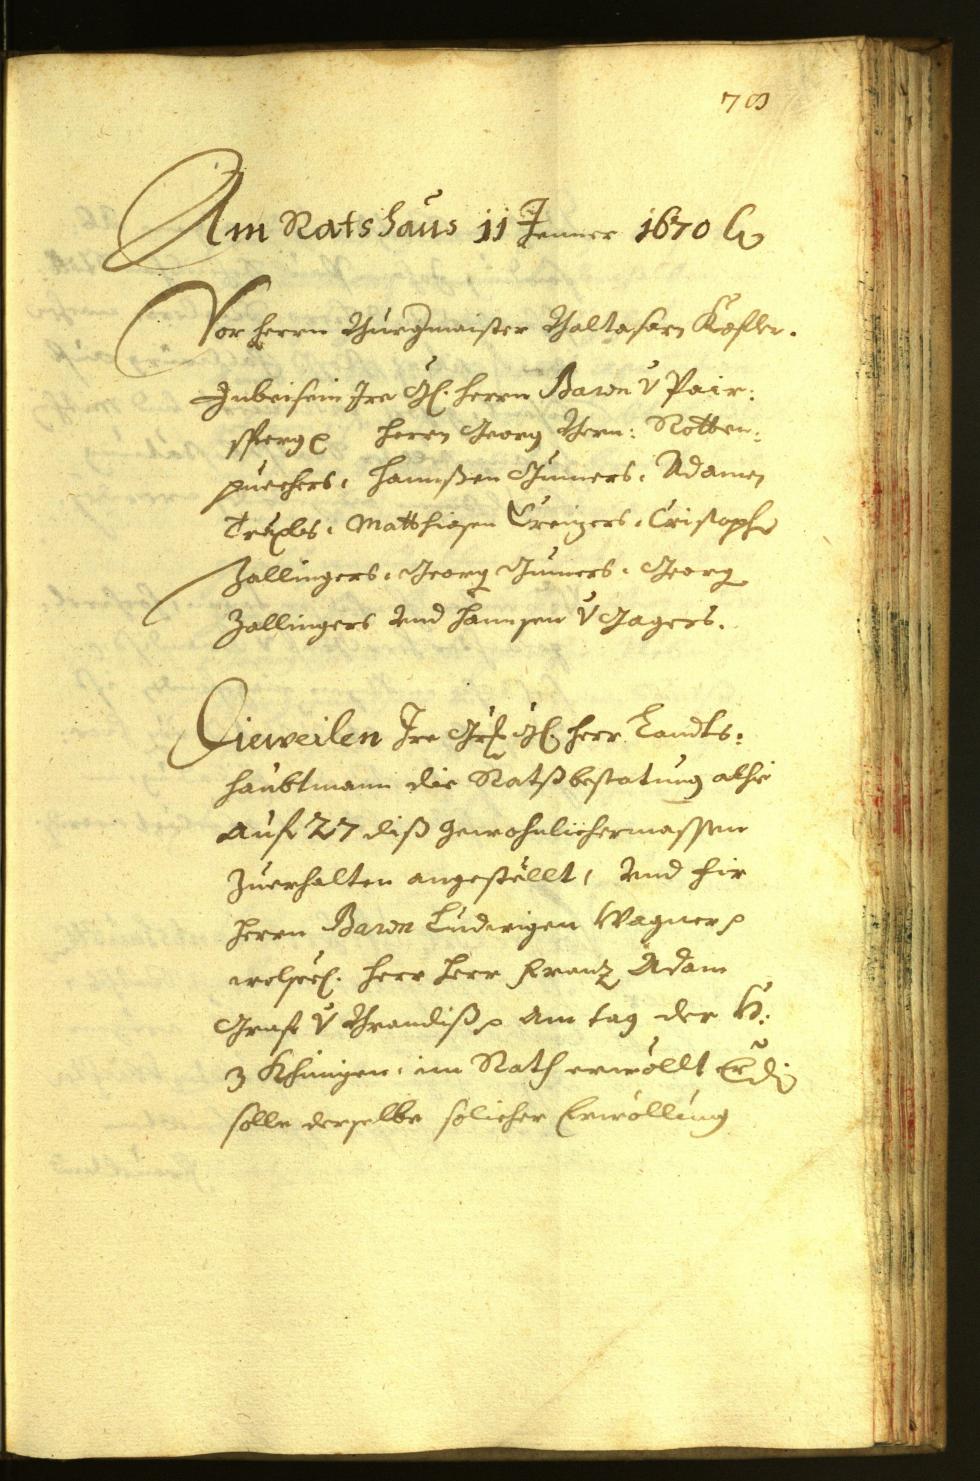 78
Am Ratshaus 11 Jenner 1670
Vor herrn Burgmaister Balthasarn Kofler.
In beisein Ire Gl. herrn Baron V Pair:
sperg herrn Georg Bern: Rotten:
puechers, hannsen Gumers, Adamen
Trexls, Matthiasen Creuzers, Cristophs
Zallingers, Georg Gumers, Georg
Zallingers und hannsen V Jagers.
Dieweilen Ire Gl. herr Landts:
haubtmann die Ratsbestatung alhie
auf 27 diß gewohnlichermassen
zuerhalten angestellt, und fir
herrn Baron Ludwigen Wagner
herr herr Franz Adam
Graf V Brandiß am tag der H:
3 Khinigen, im Rath erwöllt
solle derselbe solicher Erwöllung